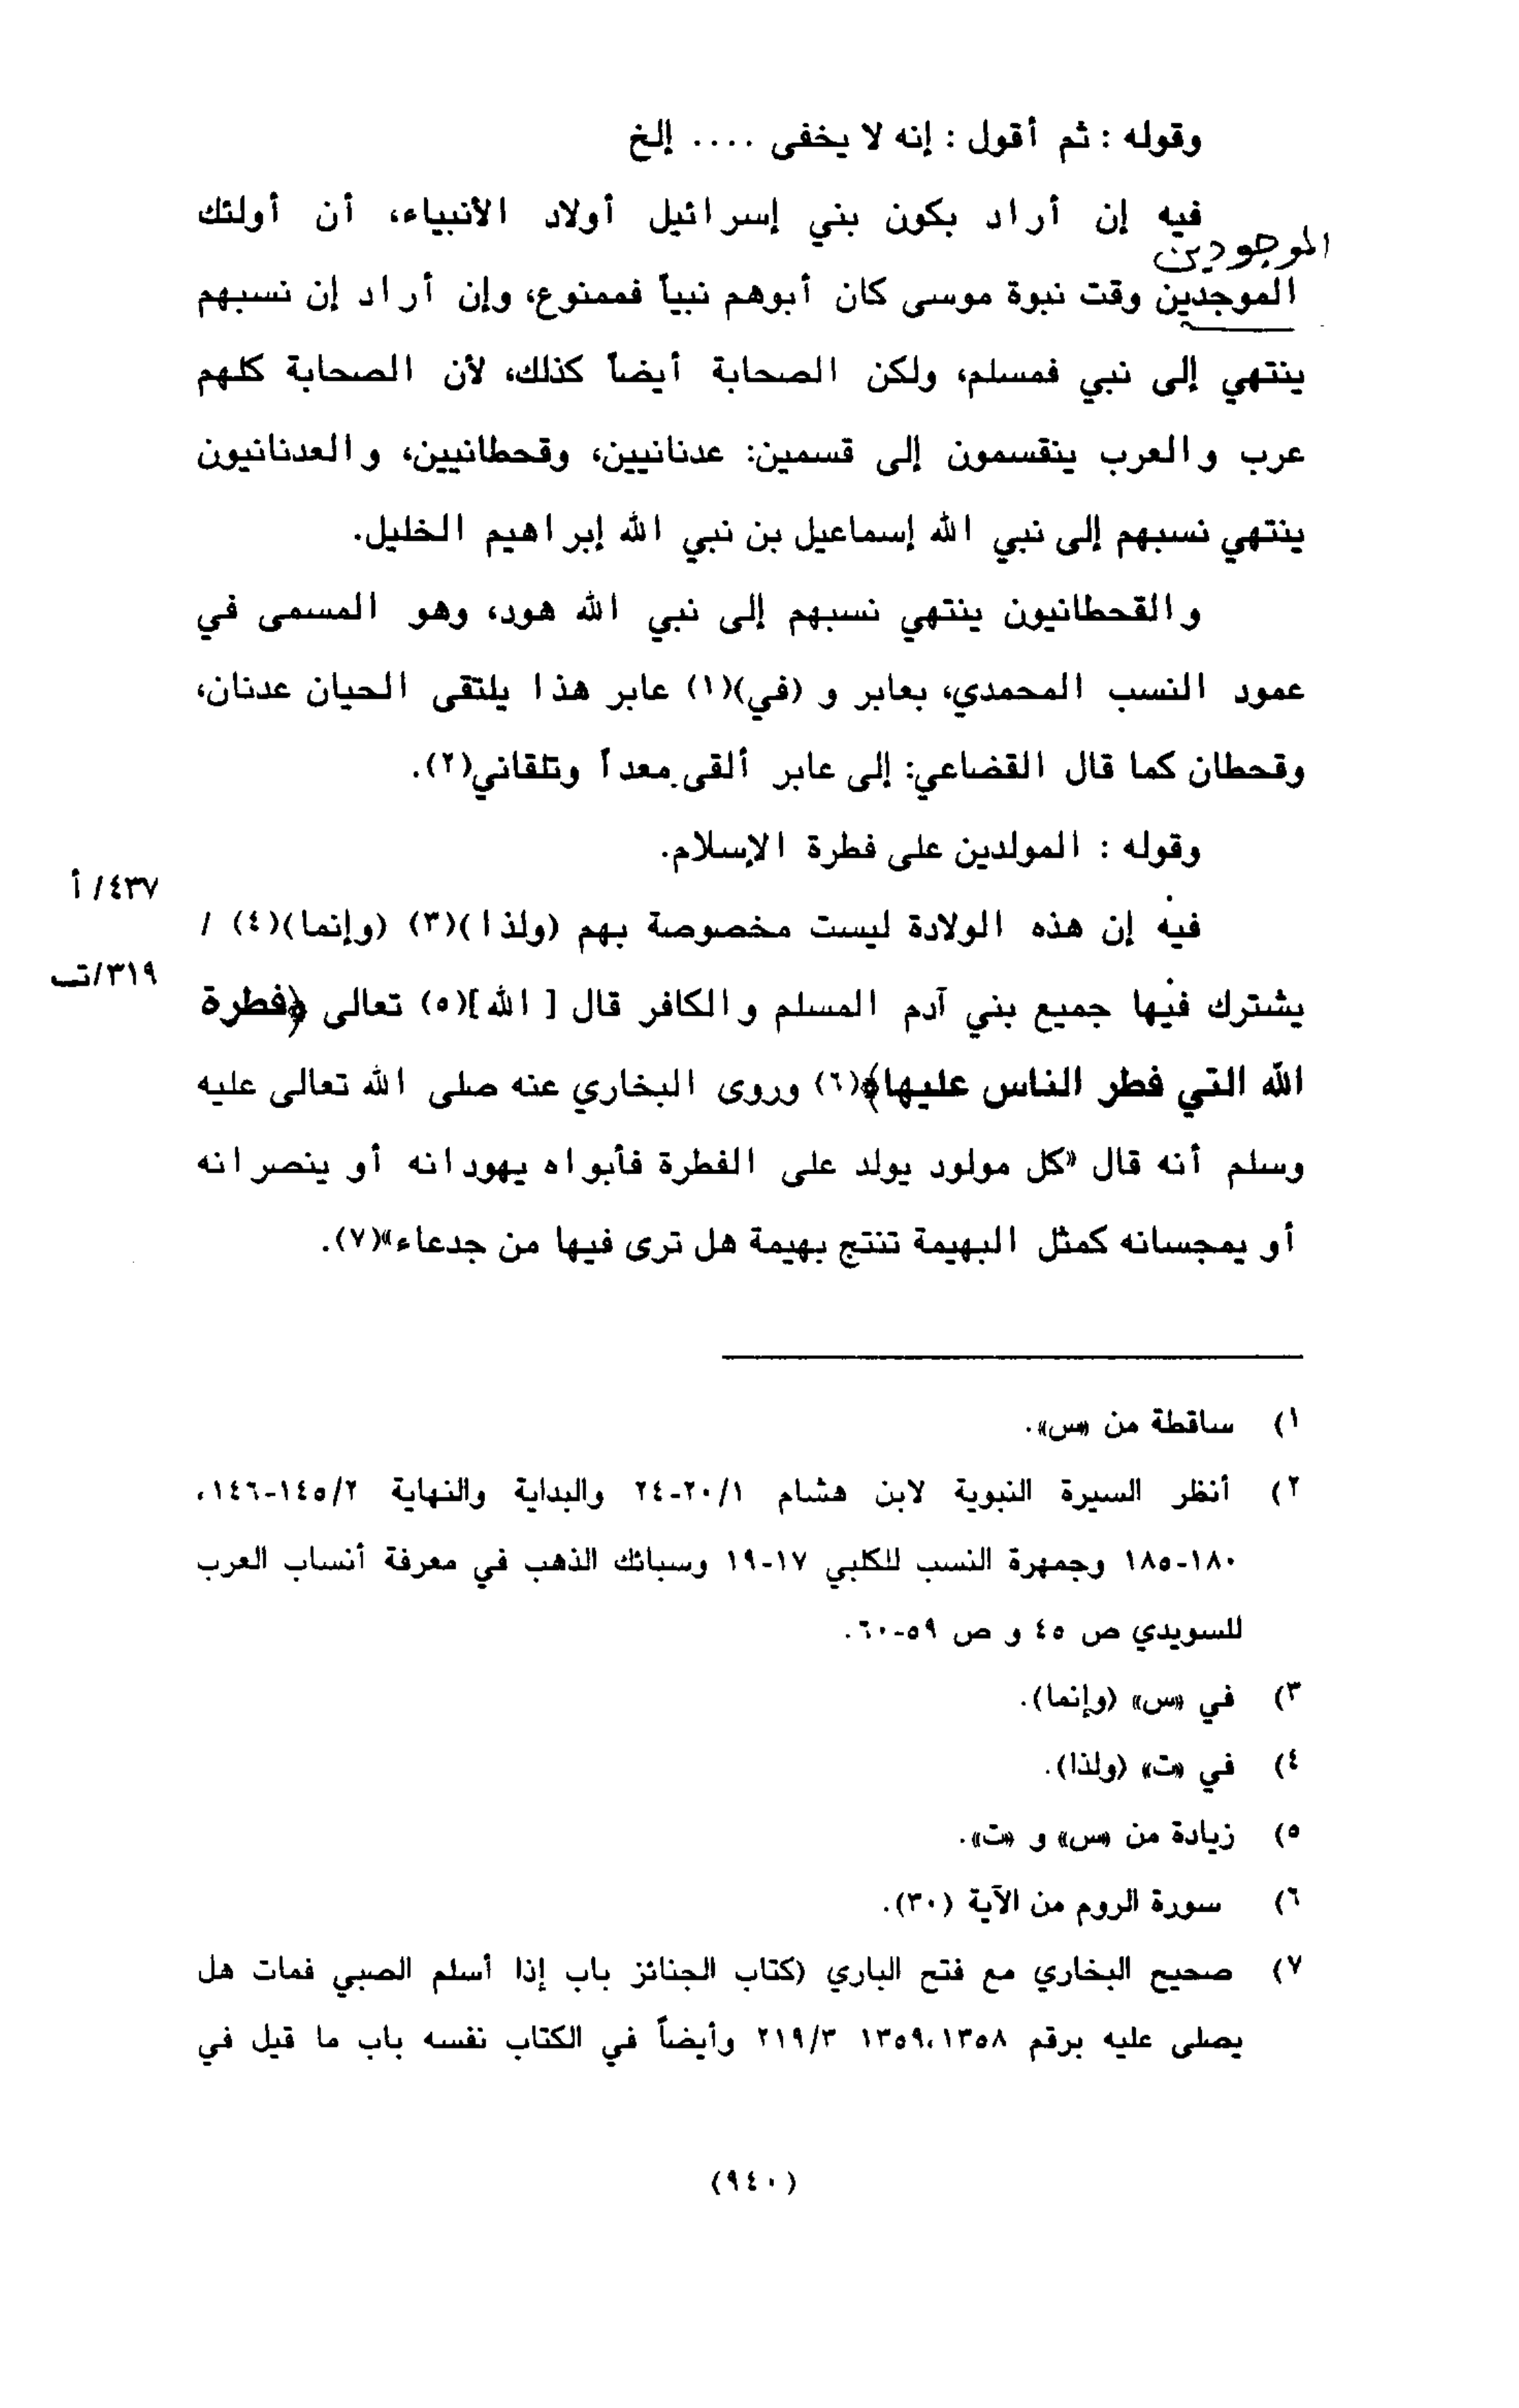 وقوله : ثم أقول : إنه لا يخفى .... إلخ
فيه إن أراد بكون بني إسرائيل أولاد الأنبياء، أن أولئك
الموجودين
الموجدين وقت نبوة موسى كان أبوهم نبياً فممنوع، وإن أراد إن نسبهم
ينتهي إلى نبي فمسلم، ولكن الصحابة أيضاً كذلك، لأن الصحابة كلهم
عرب والعرب ينقسمون إلى قسمين: عدنانيين، وقحطانيين، والعدنانيون
ينتهي نسبهم إلى نبي الله إسماعيل بن نبي الله إبراهيم الخليل.
والقحطانيون ينتهي نسبهم إلى نبي الله هود، وهو المسمى في
عمود النسب المحمدي، بعابر و (في)(١) عابر هذا يلتقى الحيان عدنان،
وقحطان كما قال القضاعي: إلى عابر ألقى معداً وتلقاني(٢).
وقوله : المولدين على فطرة الإسلام.
٤٣٧/ أ
فيه إن هذه الولادة ليست مخصوصة بهم (ولذا)(٣) (وإنما)(٤) /
٣١٩/ت
يشترك فيها جميع بني آدم المسلم والكافر قال [ الله](٥) تعالى ﴿فطرة
الله التي فطر الناس عليها﴾(٦) وروى البخاري عنه صلى الله تعالى عليه
وسلم أنه قال «كل مولود يولد على الفطرة فأبواه يهودانه أو ينصرانه
أو يمجسانه كمثل البهيمة تنتج بهيمة هل ترى فيها من جدعاء»(٧).
١) ساقطة من «س».
٢) أنظر السيرة النبوية لابن هشام ٢٠/١-٢٤ والبداية والنهاية ١٤٥/٢-١٤٦،
١٨٠-١٨٥ وجمهرة النسب للكلبي ١٧-١٩ وسبائك الذهب في معرفة أنساب العرب
للسويدي ص ٤٥ و ص ٥٩-٦٠.
٣) في «س» (وإنما).
٤) في «ت» (ولذا).
٥) زيادة من «س» و «ت».
٦) سورة الروم من الآية (٣٠).
٧) صحيح البخاري مع فتح الباري (كتاب الجنائز باب إذا أسلم الصبي فمات هل
يصلى عليه برقم ١٣٥٨،١٣٥٩ ٢١٩/٣ وأيضاً في الكتاب نفسه باب ما قيل في
(٩٤٠)